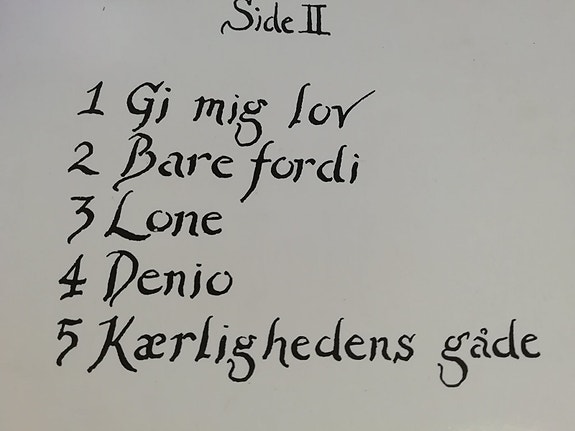 Side II
1 Gi mig lov
2 Bare fordi
3 Lone
4 Denio
5 Kærlighedens gåde